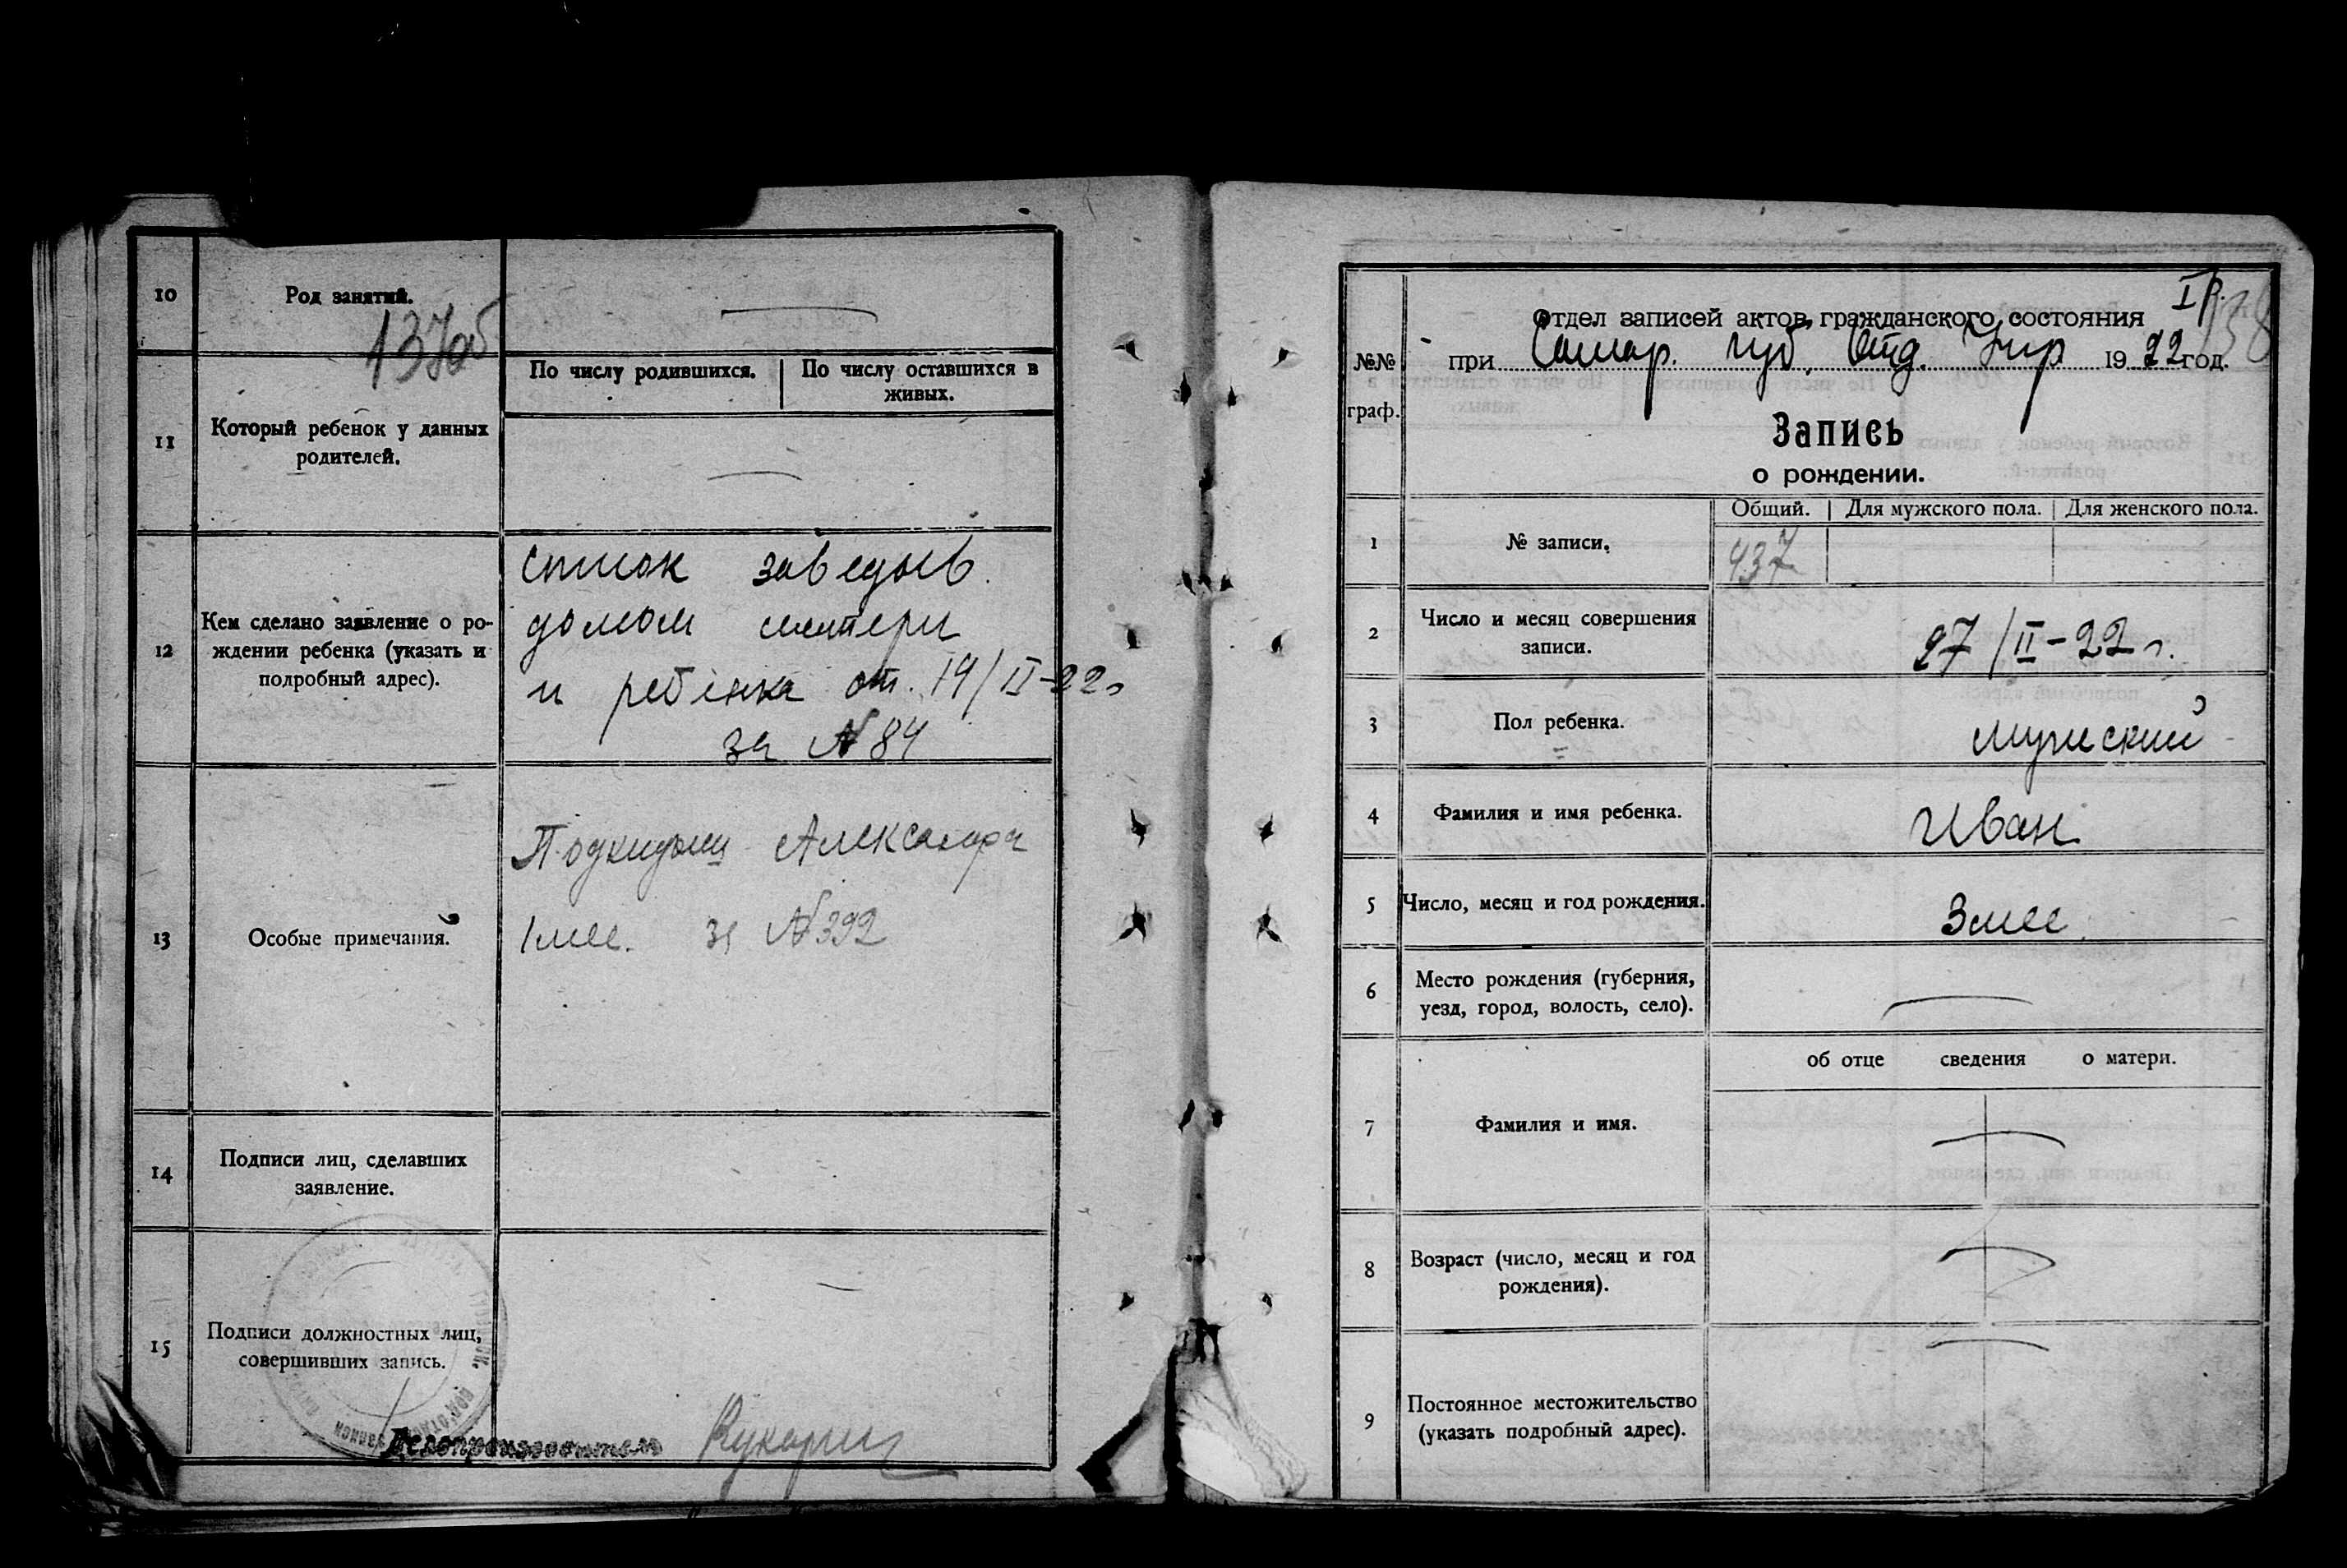 10 Род занятий.
137об
11 Который ребенок у данных
родителей.
По числу родившихся. По числу оставшихся в
живых.
12 Кем сделано заявление о ро-
ждении ребенка (указать и
подробный адрес).
список заведыв.
домом матери
и ребенка от. 19/II-22г
за №84
13 Особые примечания.
Подкидыш Александра
1 мес. за №392
14 Подписи лиц, сделавших
заявление.
15 Подписи должностных лиц,
совершивших запись.
Делопроизводитель
№№
граф.
138
Отдел записей актов гражданского состояния
при Самар. губ. Отд. Упр 1922 год.
Запись
о рождении.
1 № записи.
Общий. Для мужского пола. Для женского пола.
437
2 Число и месяц совершения
записи.
27/II-22 г.
3 Пол ребенка.
мужский
4 Фамилия и имя ребенка.
Иван
5 Число, месяц и год рождения.
3 мес.
6 Место рождения (губерния,
уезд, город, волость, село).
об отце сведения о матери.
7 Фамилия и имя.
8 Возраст (число, месяц и год
рождения).
9 Постоянное местожительство
(указать подробный адрес).